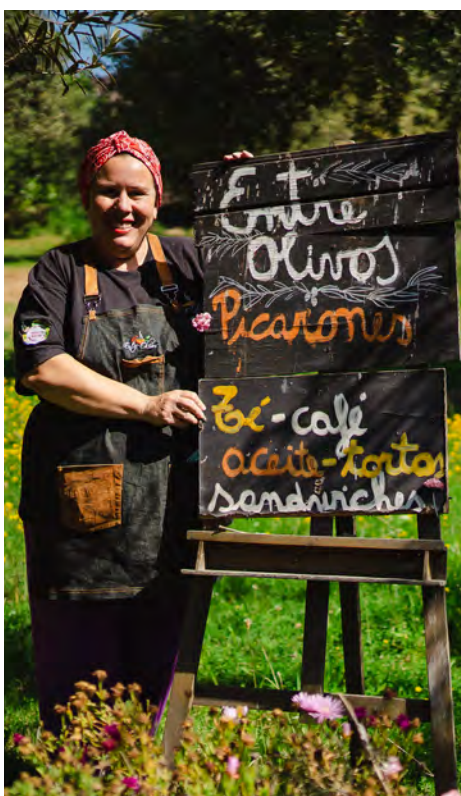 Entre
Olivos
Picarones
Té-café
aceite-tortas
sandwiches